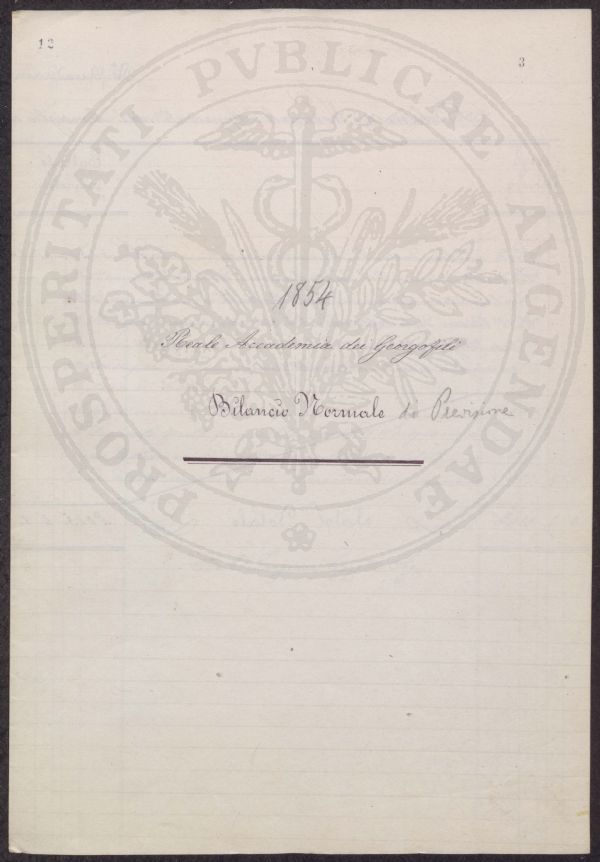 12
3
PROSPERITATI PVBLICAE AVGENDAE
1854
Reale Accademia dei Georgofili
Bilancio Normale di Previsione